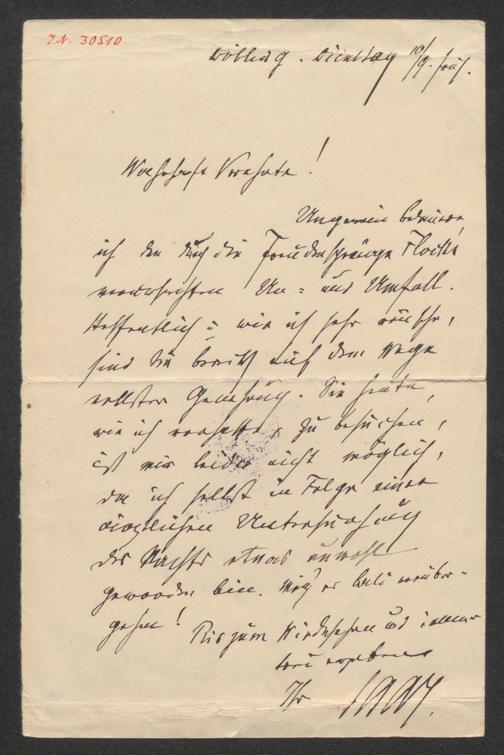 I.N. 30510
Döbling. Dienstag 10/9. früh.
Wahrhaft Verehrte!
Ungemein bedaure
ich den durch die Freudensprünge Flock's
verursachten Un- und Umfall.
Hoffentlich u. wie ich sehr wünsche,
sind Sie bereits auf dem Wege
vollster Genesung. Sie heute,
wie ich vorhatte, zu besuchen,
ist mir leider nicht möglich,
da ich selbst in Folge einer
ärztlichen Untersuchung
des Nachts etwas unwohl
geworden bin. Mög' es bald vorüber-
gehen!
Bis zum Wiedersehen und immer
treu ergebener
Ihr